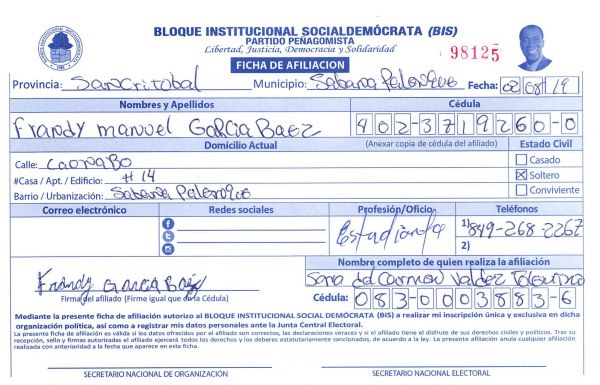 BLOQUE INSTITUCIONAL SOCIALDEMÓCRATA (BIS)
PARTIDO PEÑAGOMISTA
Libertad, Justicia, Democracia y Solidaridad
98125
FICHA DE AFILIACION
Provincia: Sancristobal Municipio: Sabana Palenque Fecha: 02/08/19
Nombres y Apellidos Cédula
Frandy manuel García Baez 402-3719260-0
Domicilio Actual (Anexar copia de cédula del afiliado) Estado Civil
Calle: Caonabo Casado
#Casa / Apt. / Edificio: #14 Soltero
Barrio / Urbanización: Sabana Palenque Conviviente
Correo electrónico Redes sociales Profesión/Oficio Teléfonos
Estudiante 1) 849-268-2267
2)
Nombre completo de quien realiza la afiliación
Frandy García Baéz del Carmen Valdez Tolentino
Firma del afiliado (Firme igual que la Cédula) Cédula: 083-0003883-6
Mediante la presente ficha de afiliación autorizo al BLOQUE INSTITUCIONAL SOCIAL DEMÓCRATA (BIS) a realizar mi inscripción única y exclusiva en dicha
organización política, así como a registrar mis datos personales ante la Junta Central Electoral.
La presente ficha de afiliación es válida si los datos ofrecidos por el afiliado son correctos, las declaraciones veraces y si el afiliado tiene el disfrute de sus derechos civiles y políticos. Tras su
recepción, sello y firmas autorizadas el afiliado ejercerá todos los derechos y los deberes estatutariamente sancionados, de acuerdo a la ley. La presente afiliación anula cualquier afiliación
realizada con anterioridad a la fecha que aparece en esta ficha.
SECRETARIO NACIONAL DE ORGANIZACIÓN SECRETARIO NACIONAL ELECTORAL